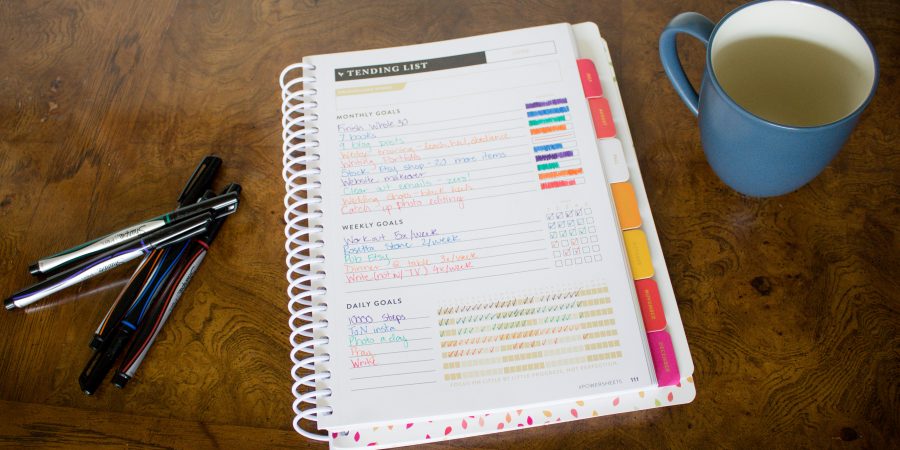 TENDING LIST
MONTHLY GOALS
Finish Whole 30
7 books
9 blog posts
Writing Portfolio
Stock Etsy shop - 20 more items
Website makeover
Clear out emails - zero!
Catch up photo editing
WEEKLY GOALS
Work out 5x/week
Rosetta Stone 2/week
Pub Etsy
Dinner @ table 3x/week
Write (not w/ T.V.) 4x/week
DAILY GOALS
10000 Steps
JoN insta
Photo a day
Pray
Write
FOCUS ON LITTLE BY LITTLE PROGRESS, NOT PERFECTION.
#POWERSHEETS 111
NOVEMBER
DECEMBER
Sharpie